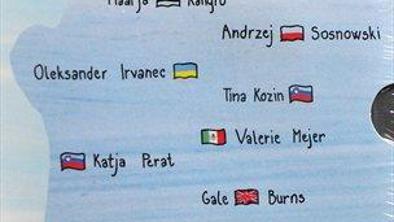 Maarja Kangro
Andrzej Sosnowski
Oleksander Irvanec
Tina Kozin
Valerie Mejer
Katja Perat
Gale Burns